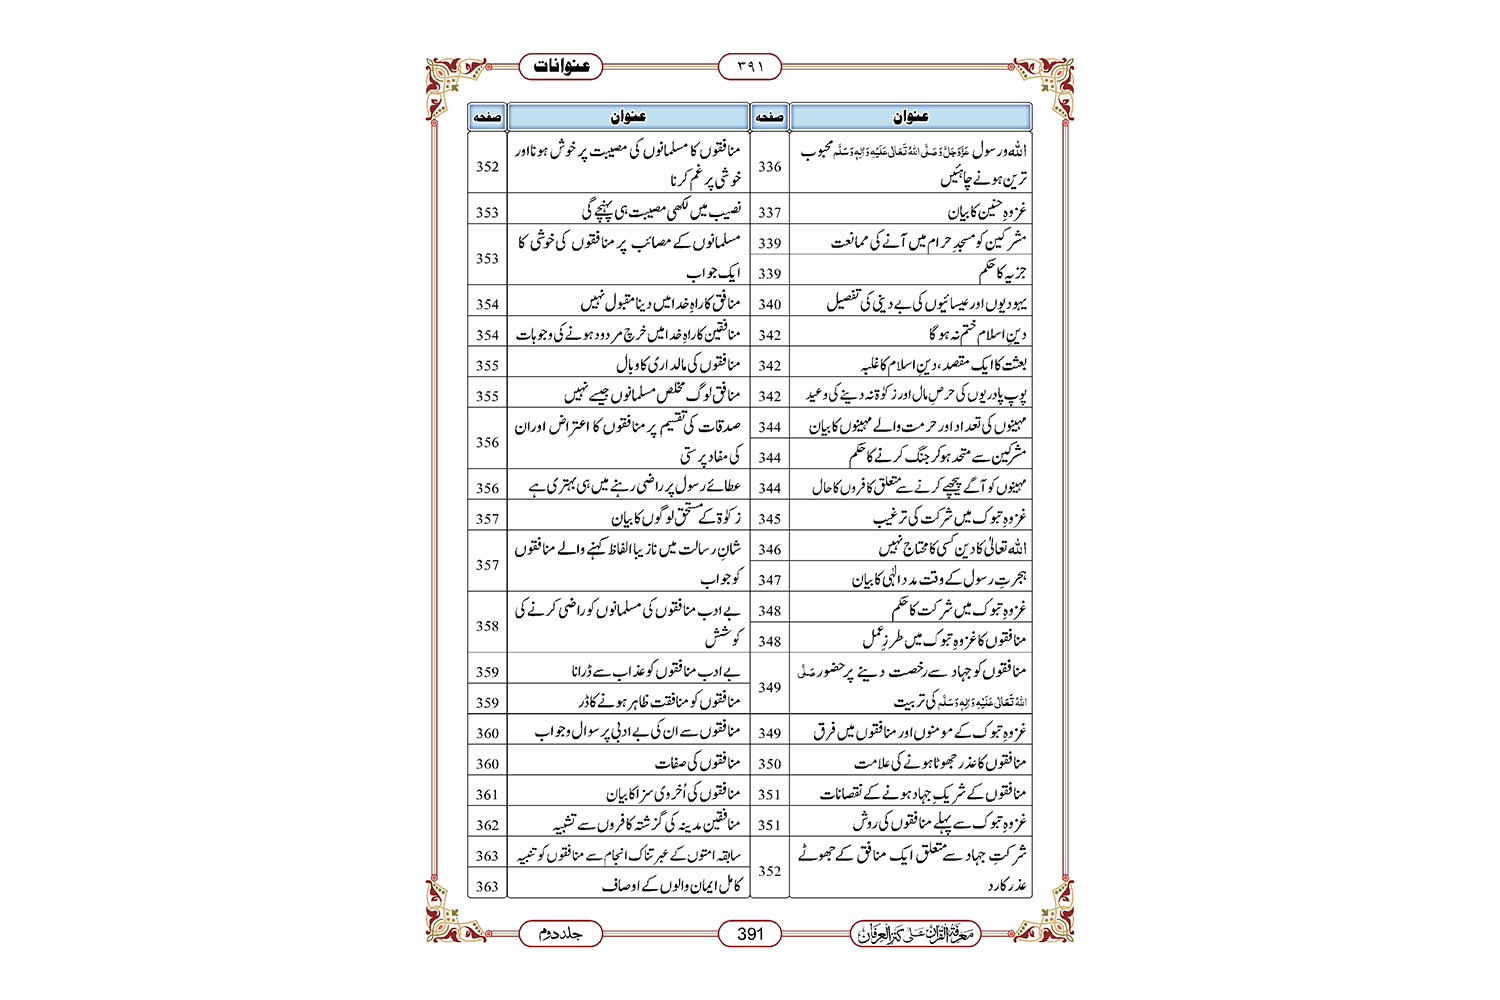 عنوانات
۳۹۱
عنوان
صفحہ
اللہ و رسول عَزَّوَجَلَّ وَ صَلَّی اللہُ تَعَالٰی عَلَیْہِ وَاٰلِہٖ وَسَلَّم محبوب
ترین ہونے چاہئیں
336
غزوہِ حنین کا بیان
337
مشرکین کو مسجدِ حرام میں آنے کی ممانعت
339
جزیہ کا حکم
339
یہودیوں اور عیسائیوں کی بے دینی کی تفصیل
340
دینِ اسلام ختم نہ ہو گا
342
بعثت کا ایک مقصد، دینِ اسلام کا غلبہ
342
پوپ پادریوں کی حرصِ مال اور زکوٰۃ نہ دینے کی وعید
342
مہینوں کی تعداد اور حرمت والے مہینوں کا بیان
344
مشرکین سے متحد ہو کر جنگ کرنے کا حکم
344
مہینوں کو آگے پیچھے کرنے سے متعلق کافروں کا حال
344
غزوہِ تبوک میں شرکت کی ترغیب
345
اللہ تعالیٰ کا دین کسی کا محتاج نہیں
346
ہجرتِ رسول کے وقت مددِ الٰہی کا بیان
347
غزوہِ تبوک میں شرکت کا حکم
348
منافقوں کا غزوہِ تبوک میں طرزِ عمل
348
منافقوں کو جہاد سے رخصت دینے پر حضور صَلَّی
اللہُ تَعَالٰی عَلَیْہِ وَاٰلِہٖ وَسَلَّم کی تربیت
349
غزوہِ تبوک کے مومنوں اور منافقوں میں فرق
349
منافقوں کا عذر جھوٹا ہونے کی علامت
350
منافقوں کے شریکِ جہاد ہونے کے نقصانات
351
غزوہِ تبوک سے پہلے منافقوں کی روش
351
شرکتِ جہاد سے متعلق ایک منافق کے جھوٹے
عذر کا رد
352
عنوان
صفحہ
منافقوں کا مسلمانوں کی مصیبت پر خوش ہونا اور
خوشی پر غم کرنا
352
نصیب میں لکھی مصیبت ہی پہنچے گی
353
مسلمانوں کے مصائب پر منافقوں کی خوشی کا
ایک جواب
353
منافق کا راہِ خدا میں دینا مقبول نہیں
354
منافقین کا راہِ خدا میں خرچ مردود ہونے کی وجوہات
354
منافقوں کی مالداری کا وبال
355
منافق لوگ مخلص مسلمانوں جیسے نہیں
355
صدقات کی تقسیم پر منافقوں کا اعتراض اور ان
کی مفاد پرستی
356
عطائے رسول پر راضی رہنے میں ہی بہتری ہے
356
زکوٰۃ کے مستحق لوگوں کا بیان
357
شانِ رسالت میں نازیبا الفاظ کہنے والے منافقوں
کو جواب
357
بے ادب منافقوں کی مسلمانوں کو راضی کرنے کی
کوشش
358
بے ادب منافقوں کو عذاب سے ڈرانا
359
منافقوں کو منافقت ظاہر ہونے کا ڈر
359
منافقوں سے ان کی بے ادبی پر سوال و جواب
360
منافقوں کی صفات
360
منافقوں کی اُخروی سزا کا بیان
361
منافقینِ مدینہ کی گزشتہ کافروں سے تشبیہ
362
سابقہ امتوں کے عبرتناک انجام سے منافقوں کو تنبیہ
363
کامل ایمان والوں کے اوصاف
363
معرفۃ القرآن علٰی کنز العرفان
391
جلد دوم